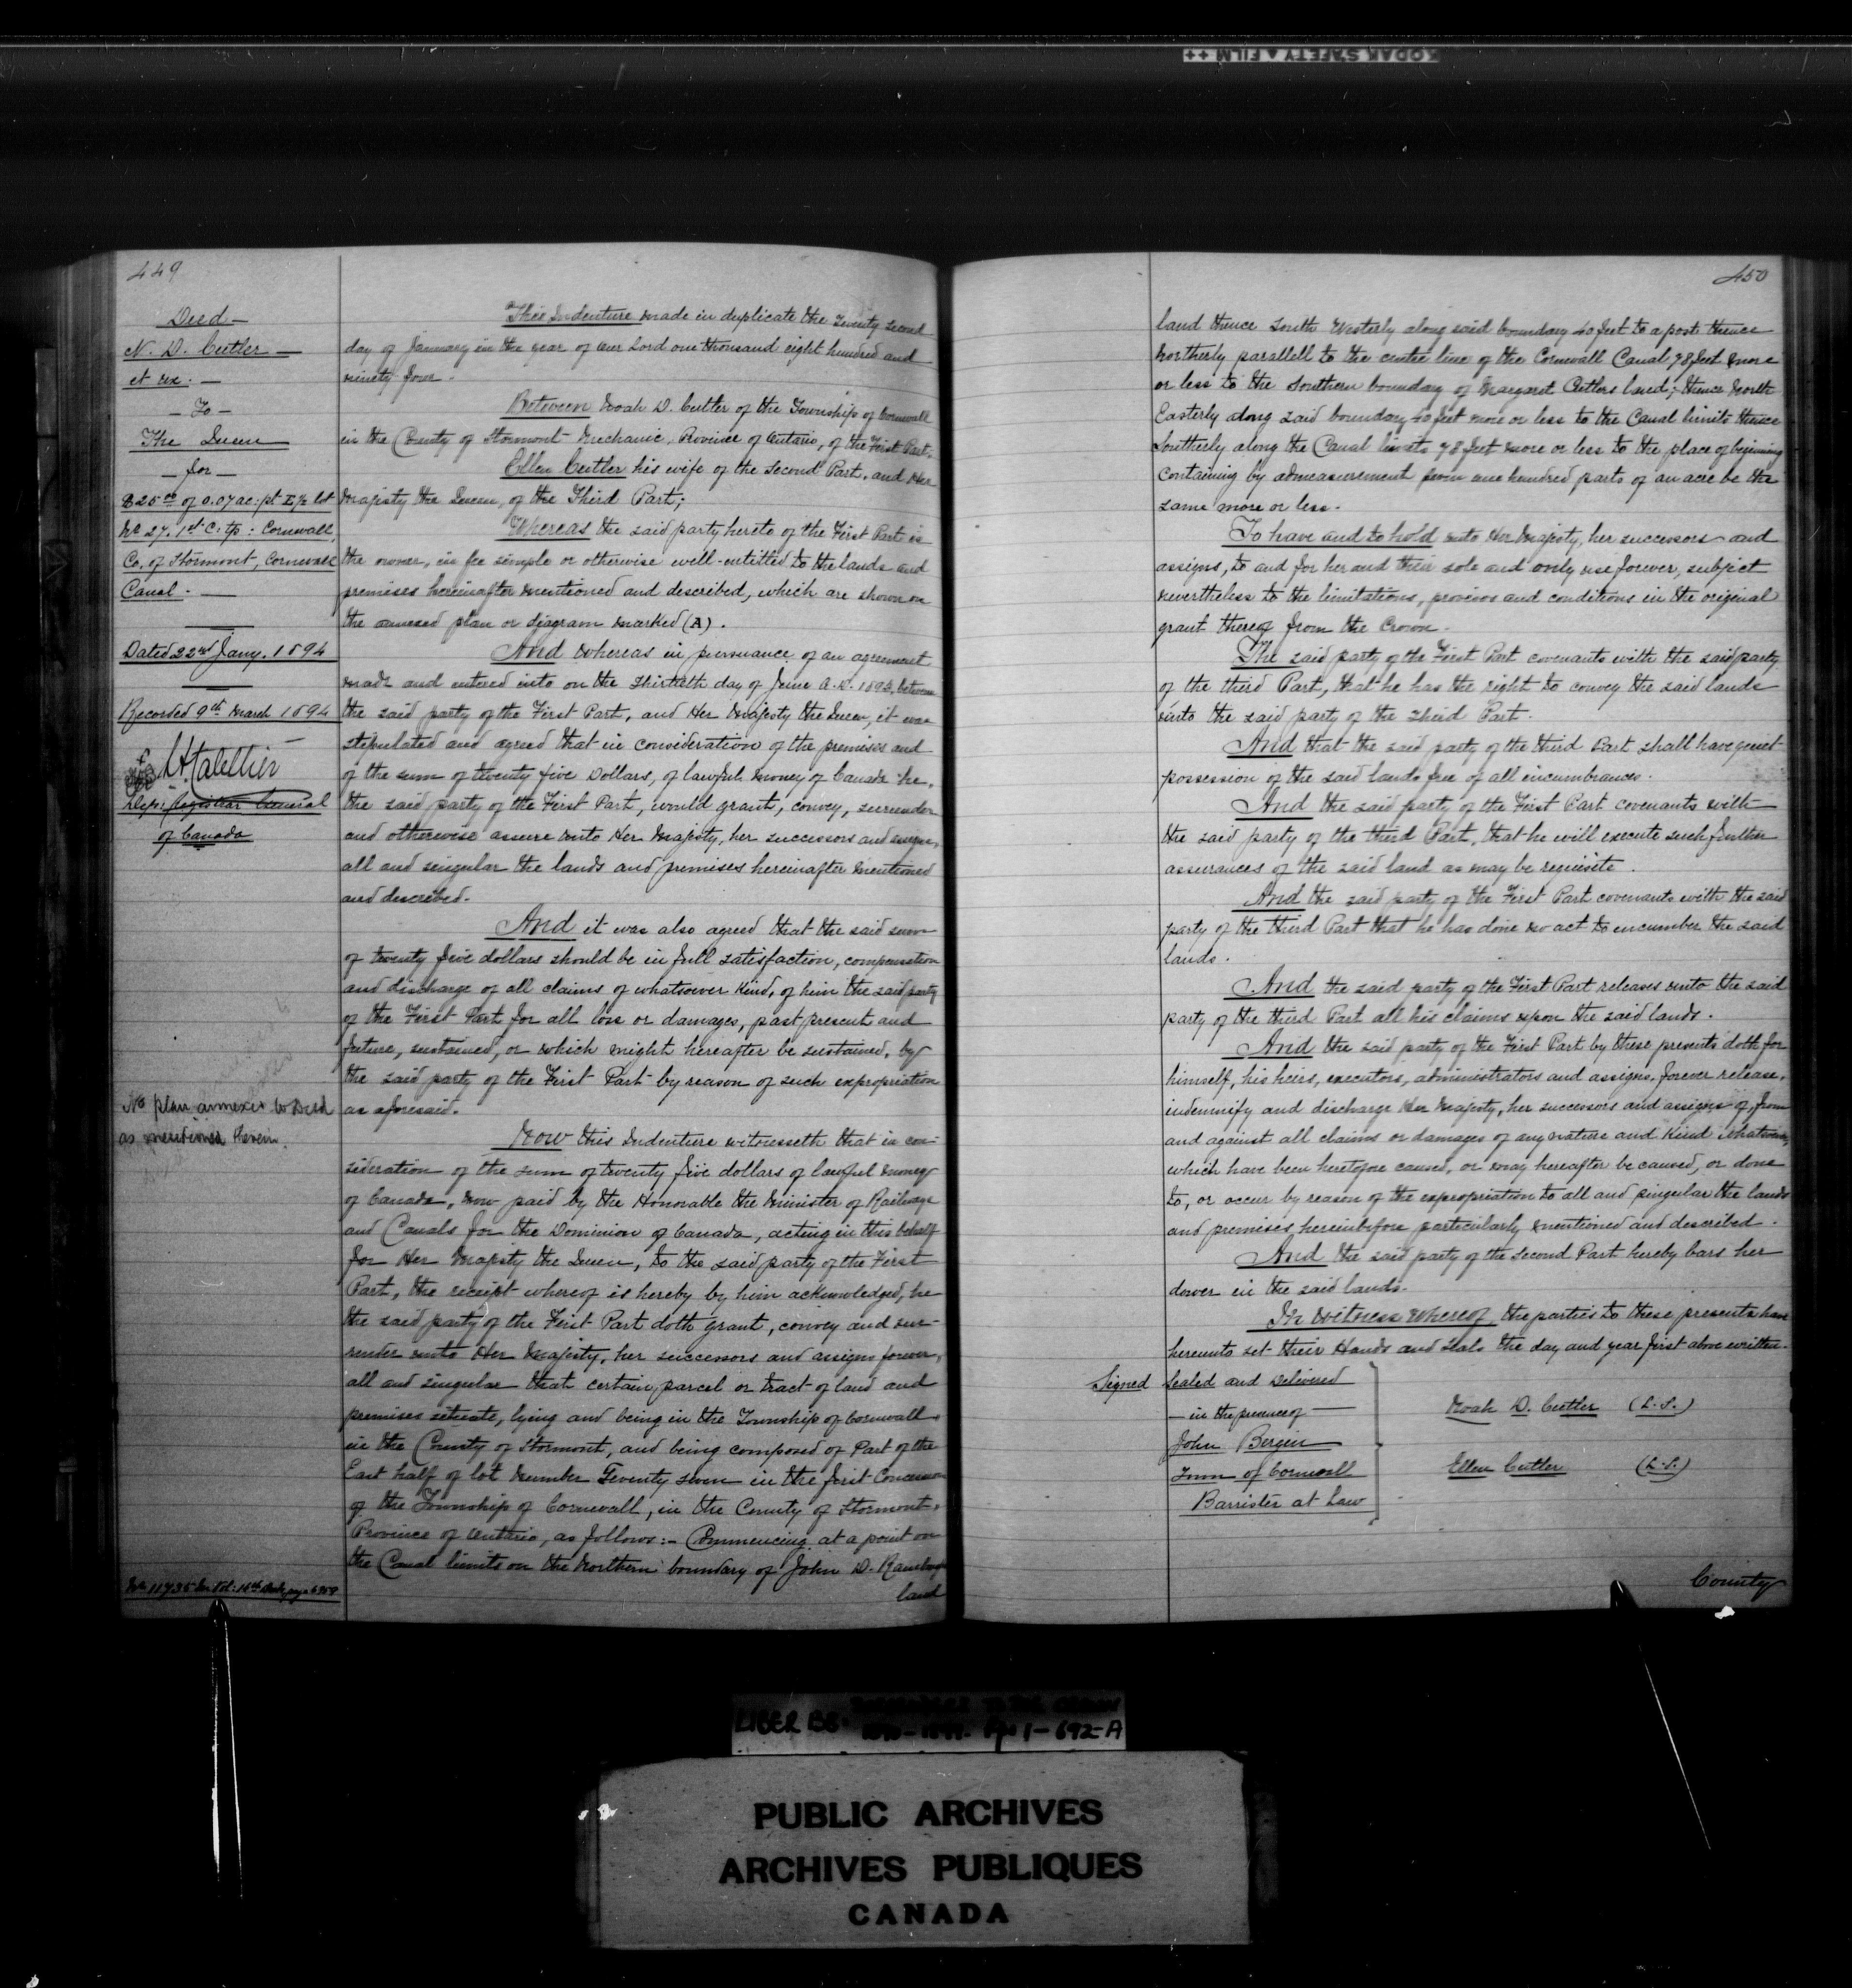 KODAK SAFETY A FILM ++
449
Deed -
N. D. Cutler -
et ux. -
- To -
The Queen
- for -
$25.00 of 0.07 ac: pt E½ lot
No 27. 1st C. tp: Cornwall,
Co. of Stormont, Cornwall
Canal. -
Dated 22nd Jany. 1894
Recorded 9th March 1894
Dep: Registrar General
of Canada
No plan annexed to Deed
as mentioned therein.
This Indenture made in duplicate the Twenty second
day of January in the year of Our Lord one thousand eight hundred and
ninety four -
Between Noah D. Cutler of the Township of Cornwall
in the County of Stormont Mechanic, Province of Ontario, of the First Part,
Ellen Cutler his wife of the Second Part, and Her
Majesty the Queen, of the Third Part;
Whereas the said party hereto of the First Part is
the owner, in fee simple or otherwise well-entitled to the lands and
premises hereinafter mentioned and described, which are shown on
the annexed plan or diagram marked (A).
And whereas in pursuance of an agreement
made and entered into on the Thirtieth day of June A.D. 1893, between
the said party of the First Part, and Her Majesty the Queen, it was
stipulated and agreed that in consideration of the premises and
of the sum of twenty five Dollars, of lawful money of Canada he,
the said party of the First Part, would grant, convey, surrender
and otherwise assure unto Her Majesty, her successors and assigns,
all and singular the lands and premises hereinafter mentioned
and described.
And it was also agreed that the said sum
of twenty five dollars should be in full satisfaction, compensation
and discharge of all claims of whatsoever kind, of him the said party
of the First Part for all loss or damages, past present and
future, sustained, or which might hereafter be sustained, by
the said party of the First Part by reason of such expropriation
as aforesaid.
Now this Indenture witnesseth that in con-
sideration of the sum of twenty five dollars of lawful money
of Canada, now paid by the Honorable the Minister of Railways
and Canals for the Dominion of Canada, acting in this behalf
for Her Majesty the Queen, to the said party of the First
Part, the receipt whereof is hereby by him acknowledged, he
the said party of the First Part doth grant, convey and sur-
render unto Her Majesty, her successors and assigns forever,
all and singular that certain parcel or tract of land and
premises situate, lying and being in the Township of Cornwall
in the County of Stormont, and being composed of Part of the
East half of lot number Twenty seven in the first Concession
of the Township of Cornwall, in the County of Stormont,
Province of Ontario, as follows: - Commencing at a point on
the Canal limits on the Northern boundary of John D.
land
450
land thence South Westerly along said boundary 40 feet to a post thence
Northerly parallell to the centre line of the Cornwall Canal 78 feet more
or less to the Southern boundary of Margaret Cutlers land; thence North
Easterly along said boundary 40 feet more or less to the Canal limits thence
Southerly along the Canal limits 78 feet more or less to the place of begining
containing by admeasurement seven one hundred parts of an acre be the
same more or less.
To have and to hold unto Her Majesty, her successors and
assigns, to and for her and their sole and only use forever, subject
nevertheless to the limitations, provisos and conditions in the original
grant thereof from the Crown.
The said party of the First Part covenants with the said party
of the third Part, that he has the right to convey the said lands
unto the said party of the Third Part.
And that the said party of the third Part shall have quiet
possession of the said lands free of all incumbrances.
And the said party of the First Part covenants with
the said party of the third Part, that he will execute such further
assurances of the said land as may be requisite.
And the said party of the First Part covenants with the said
party of the third Part that he has done no act to encumber the said
lands.
And the said party of the First Part releases unto the said
party of the third Part all his claims upon the said lands.
And the said party of the First Part by these presents doth for
himself, his heirs, executors, administrators and assigns, forever release,
indemnify and discharge Her Majesty, her successors and assigns of, from
and against all claims or damages of any nature and kind whatsoever,
which have been heretofore caused, or may hereafter be caused, or done
to, or occur by reason of the expropriation to all and singular the lands
and premises hereinbefore particularly mentioned and described.
And the said party of the Second Part hereby bars her
dower in the said lands.
In witness whereof the parties to these presents have
hereunto set their Hands and Seals the day and year first above written.
Signed Sealed and Delivered
- in the presence of -
John Bergin
Town of Cornwall
Barrister at Law
Noah D. Cutler (L.S.)
Ellen Cutler (L.S.)
County
LIBER BB
Pgs 1 - 692-A
PUBLIC ARCHIVES
ARCHIVES PUBLIQUES
CANADA